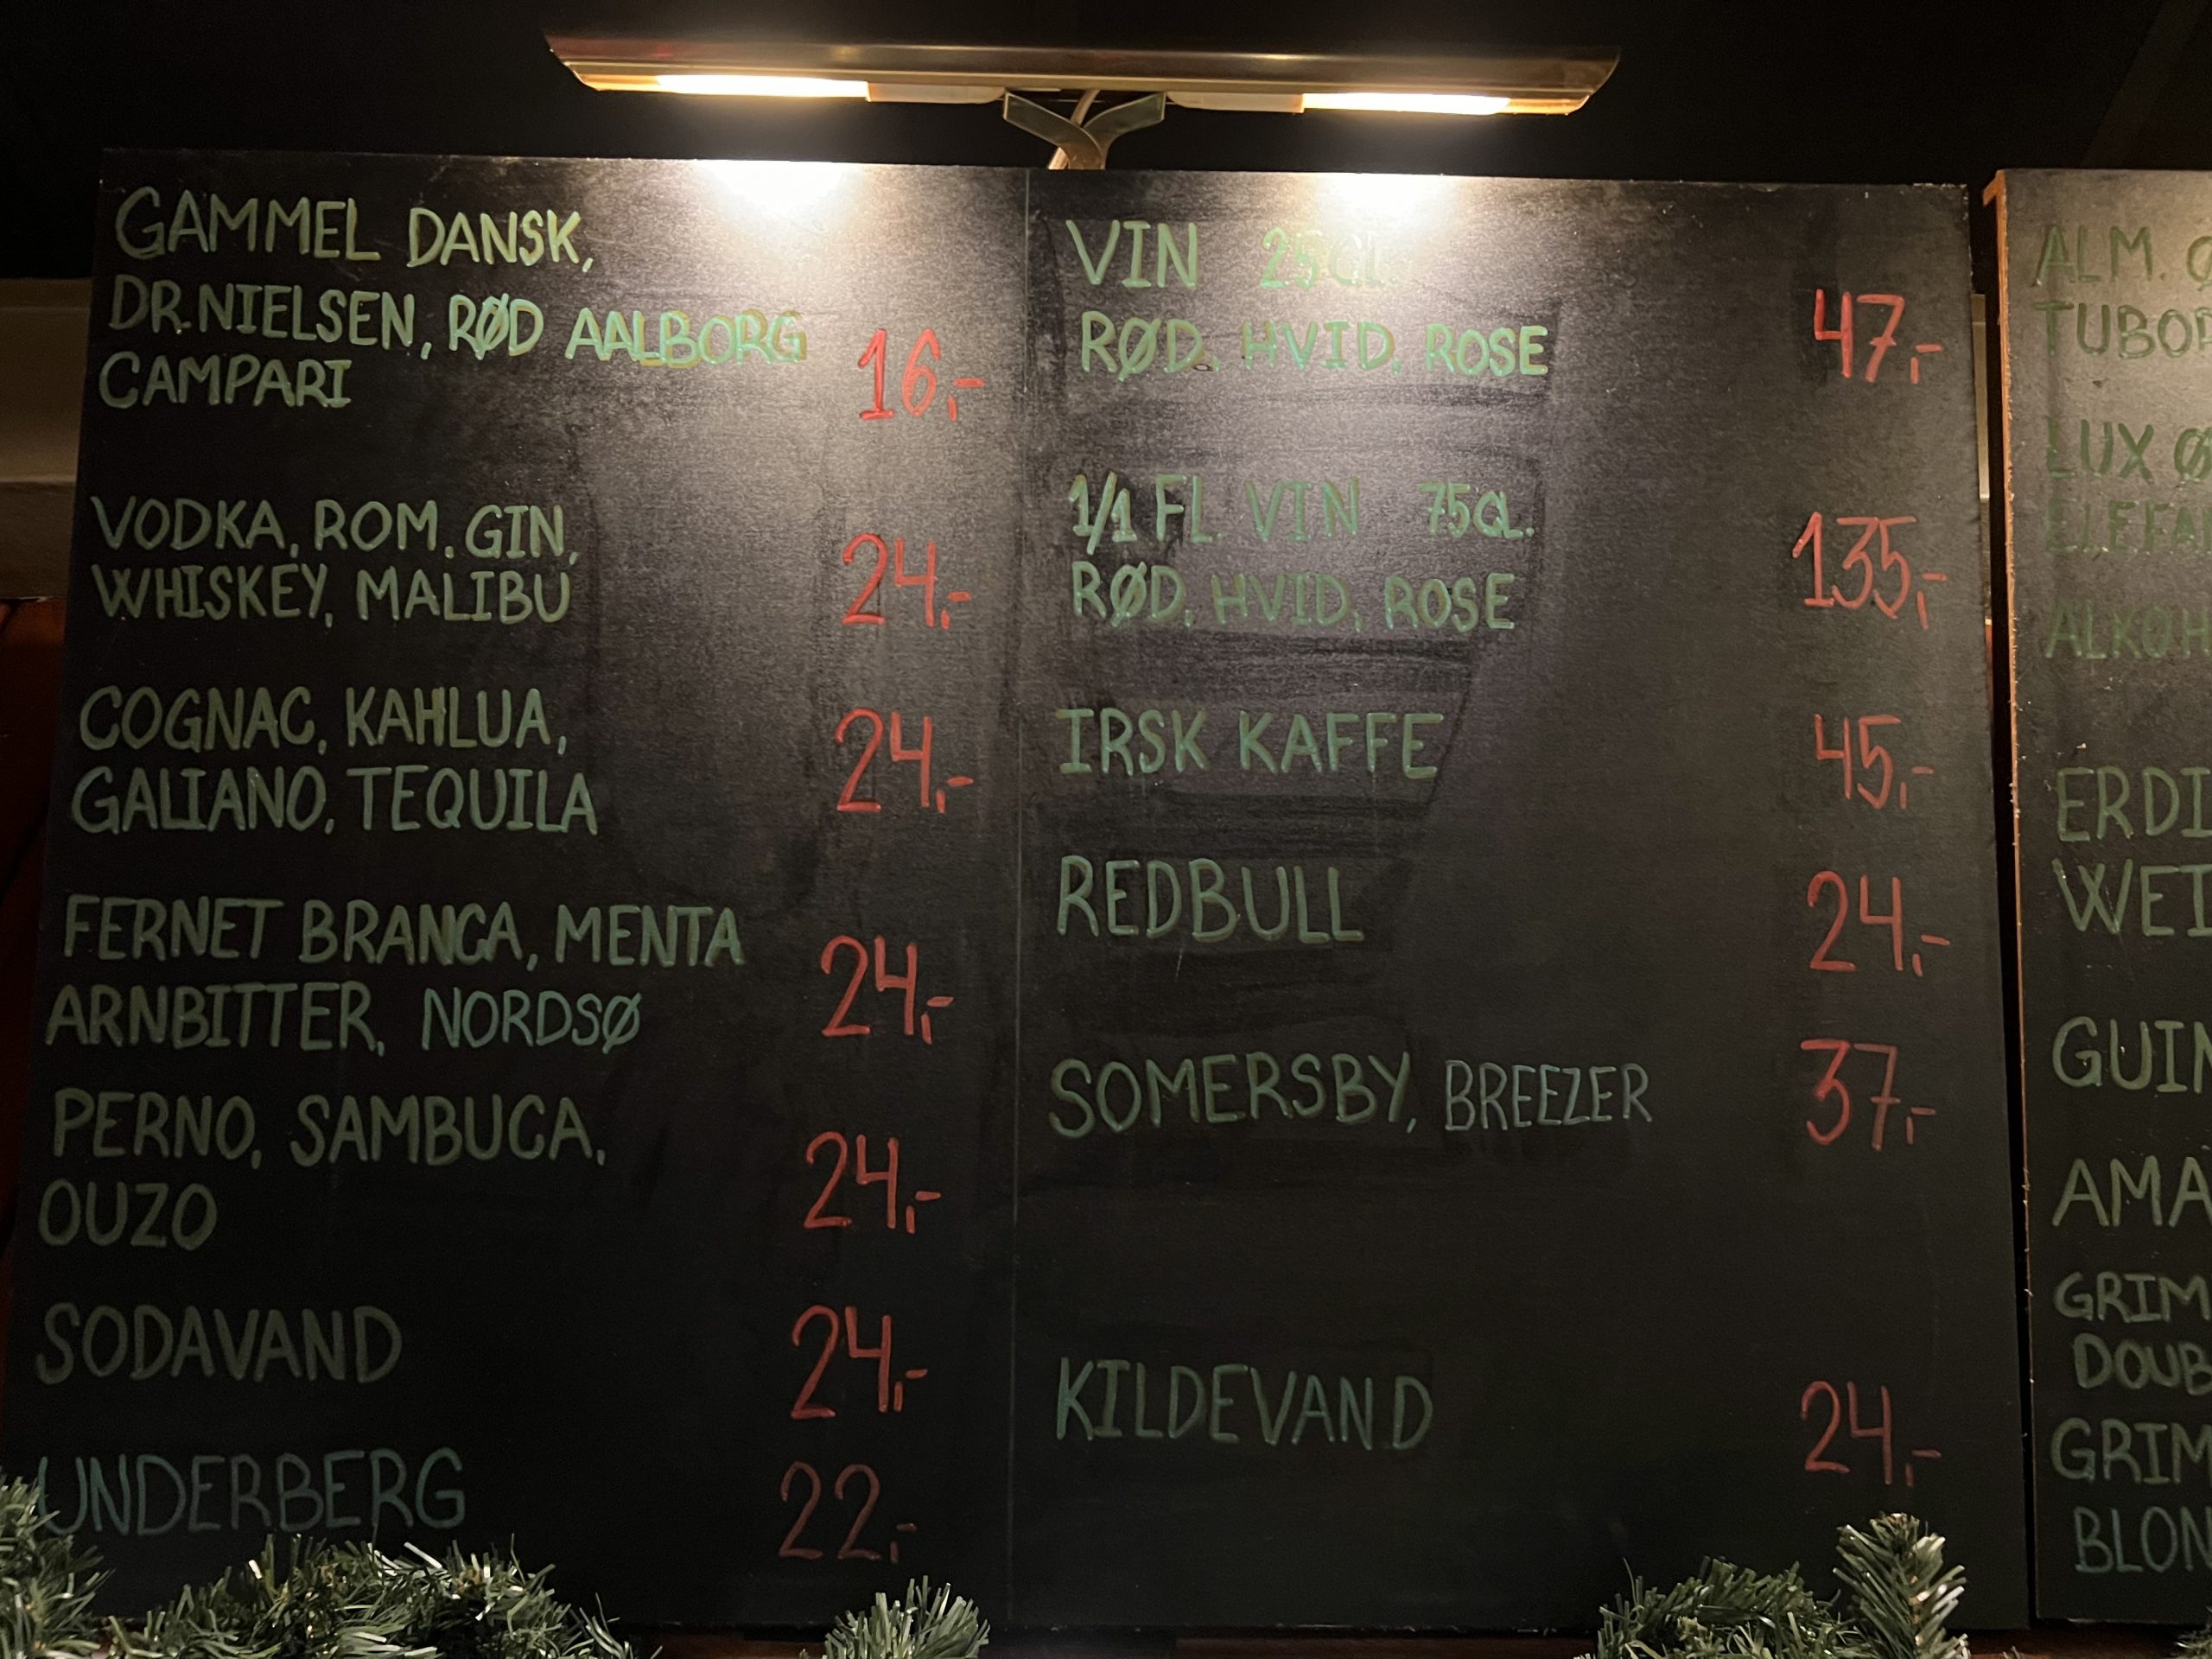 GAMMEL DANSK,
DR.NIELSEN, RØD AALBORG
CAMPARI 16,-
VODKA, ROM. GIN,
WHISKEY, MALIBU 24,-
COGNAC, KAHLUA,
GALIANO, TEQUILA 24,-
FERNET BRANCA, MENTA
ARNBITTER, NORDSØ 24,-
PERNO, SAMBUCA,
OUZO 24,-
SODAVAND 24,-
UNDERBERG 22,-
VIN 25CL.
RØD, HVID, ROSE 47,-
1/1 FL. VIN 75CL.
RØD, HVID, ROSE 135,-
IRSK KAFFE 45,-
REDBULL 24,-
SOMERSBY, BREEZER 37,-
KILDEVAND 24,-
ALM. Ø
TUBOR
LUX Ø
ELEFA
ALKOH
ERDI
WEI
GUIN
AMA
GRIM
DOUB
GRIM
BLON